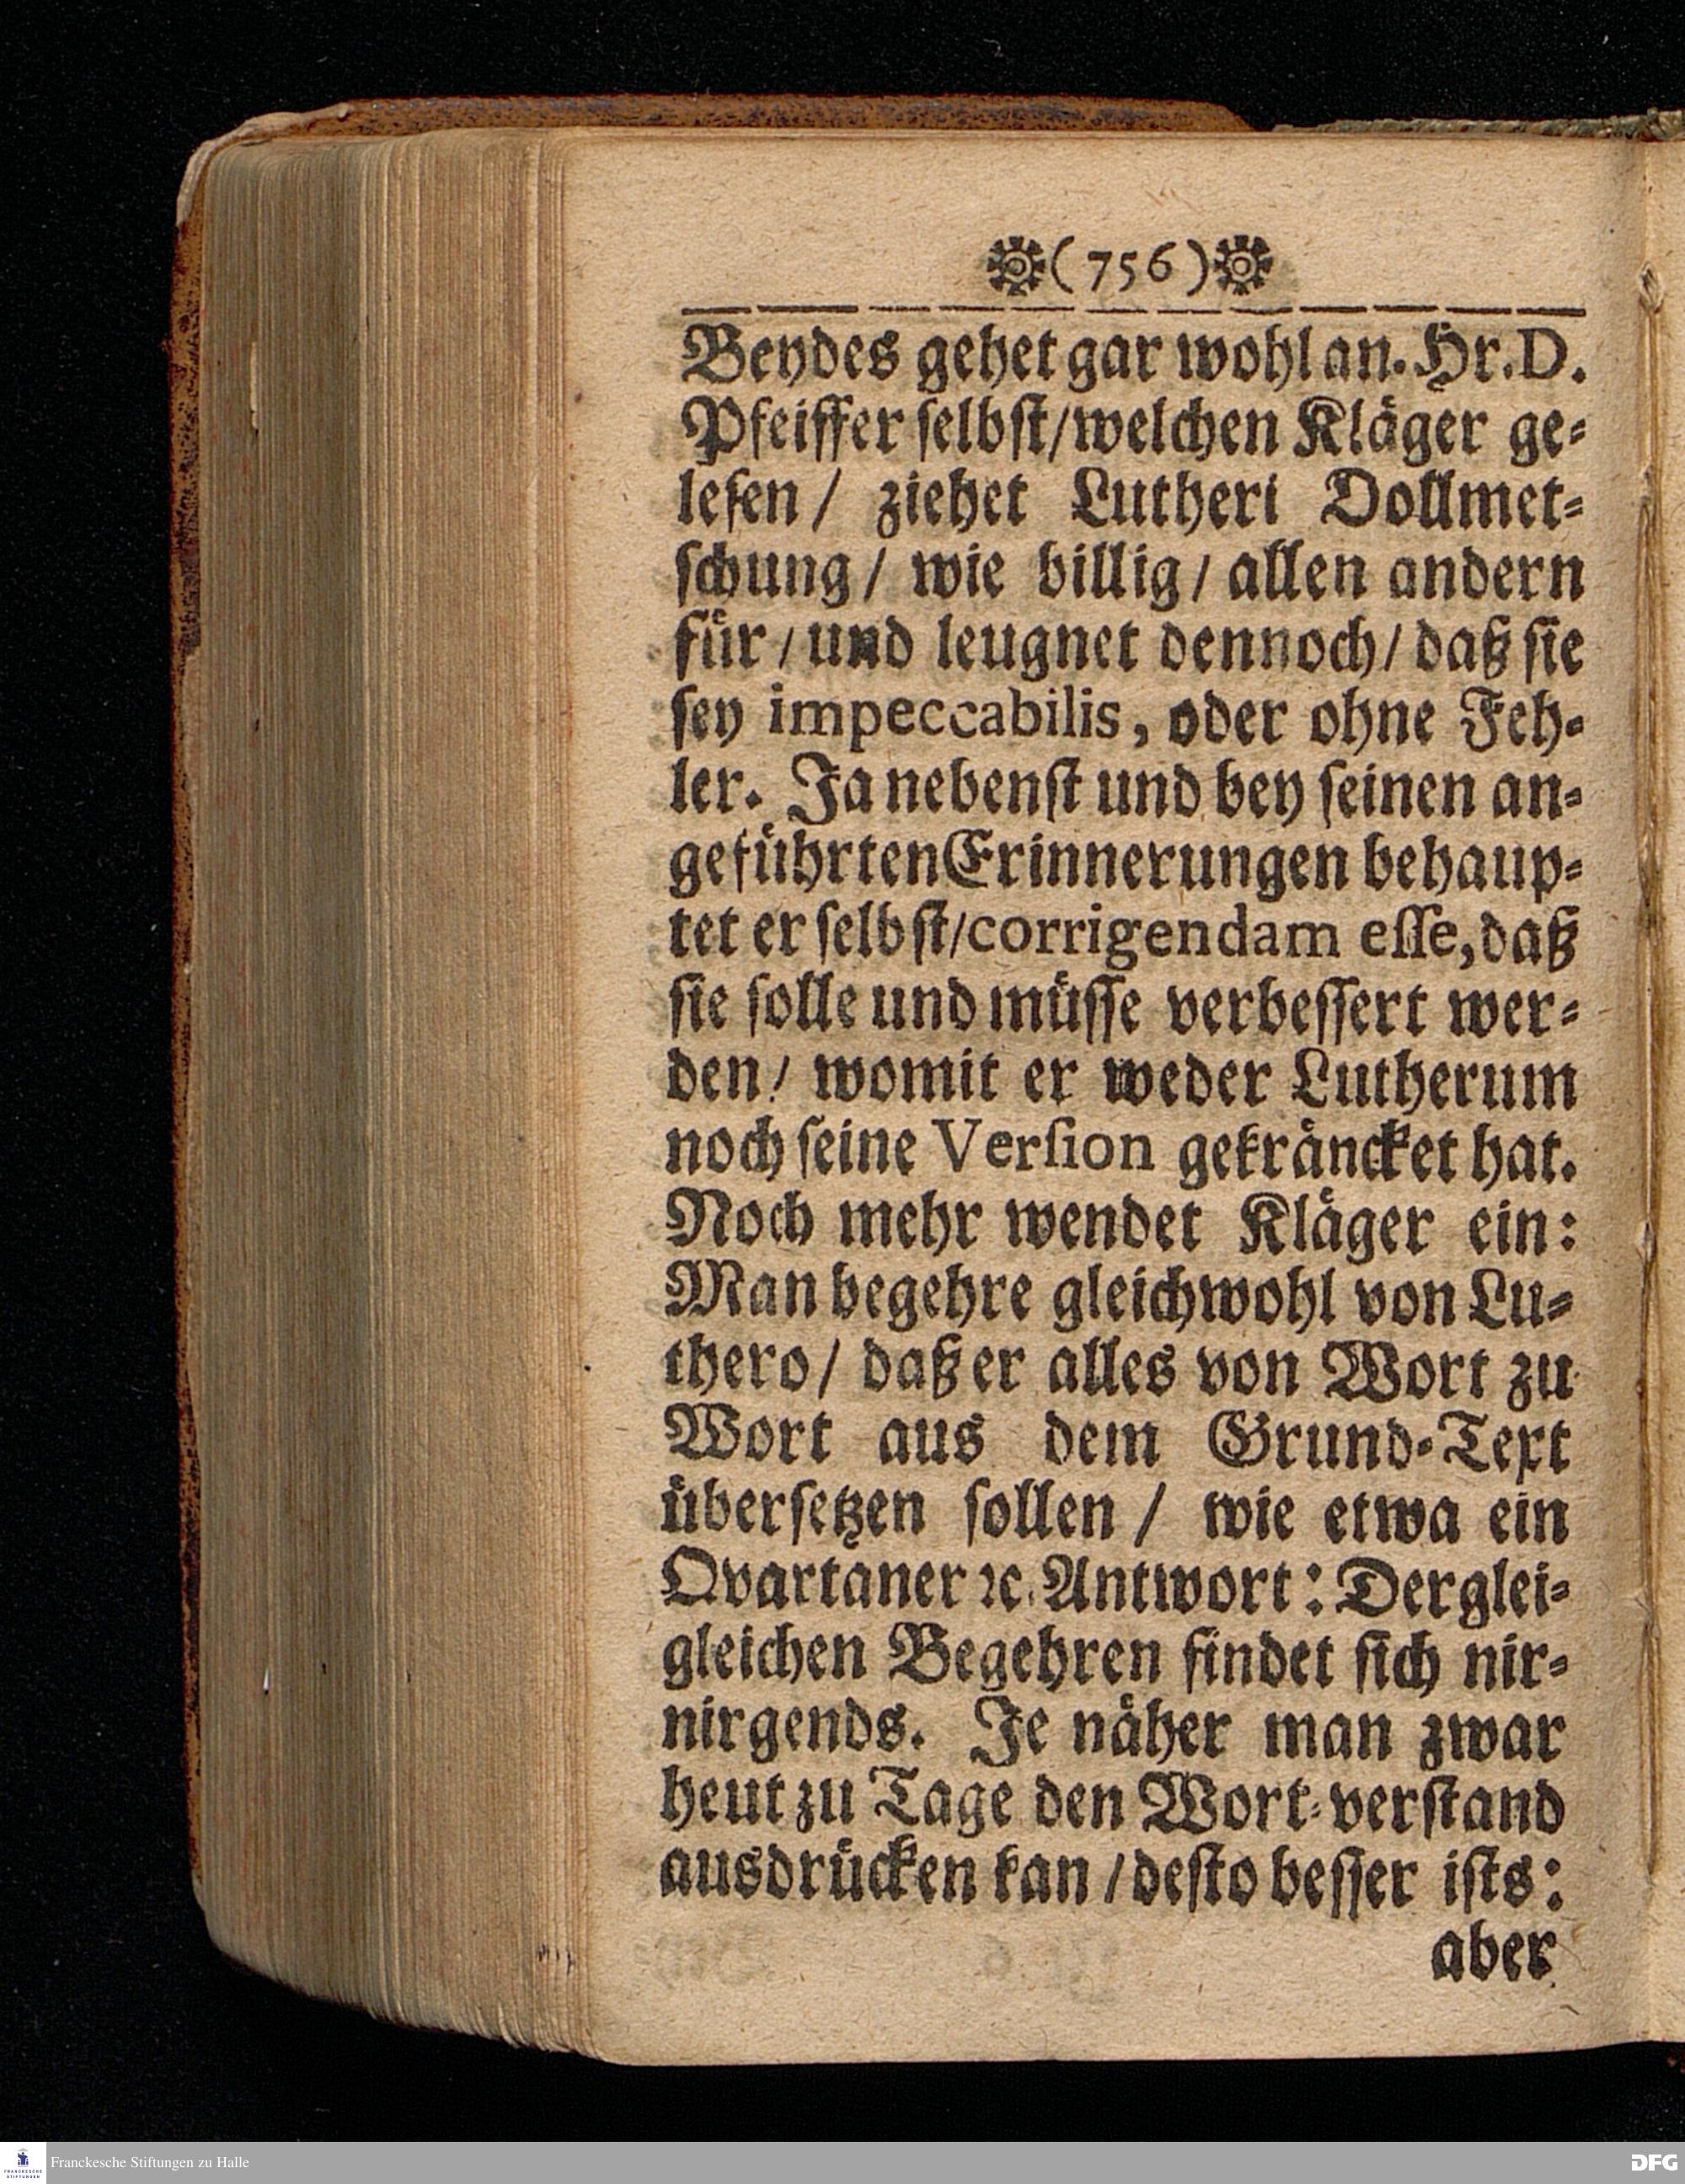 ❁( 756 )❁
Beydes gehet gar wohl an. Hr. D.
Pfeiffer ſelbſt/welchen Kläger ge-
leſen / ziehet Lutheri Dollmet-
ſchung / wie billig / allen andern
für / und leugnet dennoch / daß ſie
ſey impeccabilis, oder ohne Feh-
ler. Ja nebenſt und bey ſeinen an-
geführten Erinnerungen behaup-
tet er ſelbſt/corrigendam eſſe, daß
ſie ſolle und müſſe verbeſſert wer-
den / womit er weder Lutherum
noch ſeine Verſion gekräncket hat.
Noch mehr wendet Kläger ein:
Man begehre gleichwohl von Lu-
thero / daß er alles von Wort zu
Wort aus dem Grund-Text
überſetzen ſollen / wie etwa ein
Qvartaner ꝛc. Antwort: Derglei-
gleichen Begehren findet ſich nir-
nirgends. Je näher man zwar
heut zu Tage den Wort-verſtand
ausdrücken kan / deſto beſſer iſts:
aber
FRANCKESCHE STIFTUNGEN
Franckesche Stiftungen zu Halle
DFG